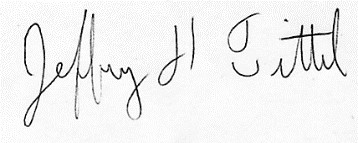 Jeffry H Tittel